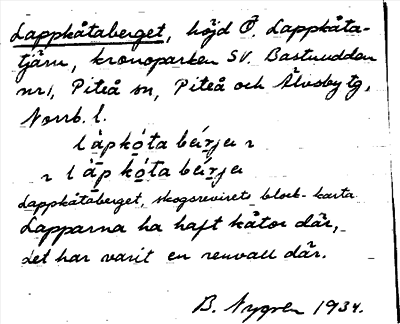 Lappkåtaberget, höjd Ö. Lappkåta-
tjärn, kronoparken SV. Bastuuddan
nr 1, Piteå sn, Piteå och Älvsby tg,
Norrb. l.
lápkóta bǽrjə
lá̱pkó̱ta bǽrjə
Lappkåtaberget, skogsrevirets block-karta
Lapparna ha haft kåtor där,
det har varit en renvall där.
B. Nygren 1934.